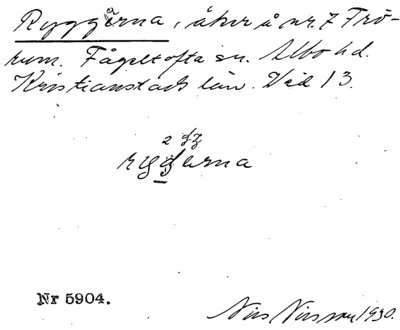 Ryggårna, åker å nr. 7 Frö-
rum. Fågeltofta sn. Albo hd.
Kristianstads län. Vid 13.
ryggarna
Nr 5904.
Nils Nilsson 1930.